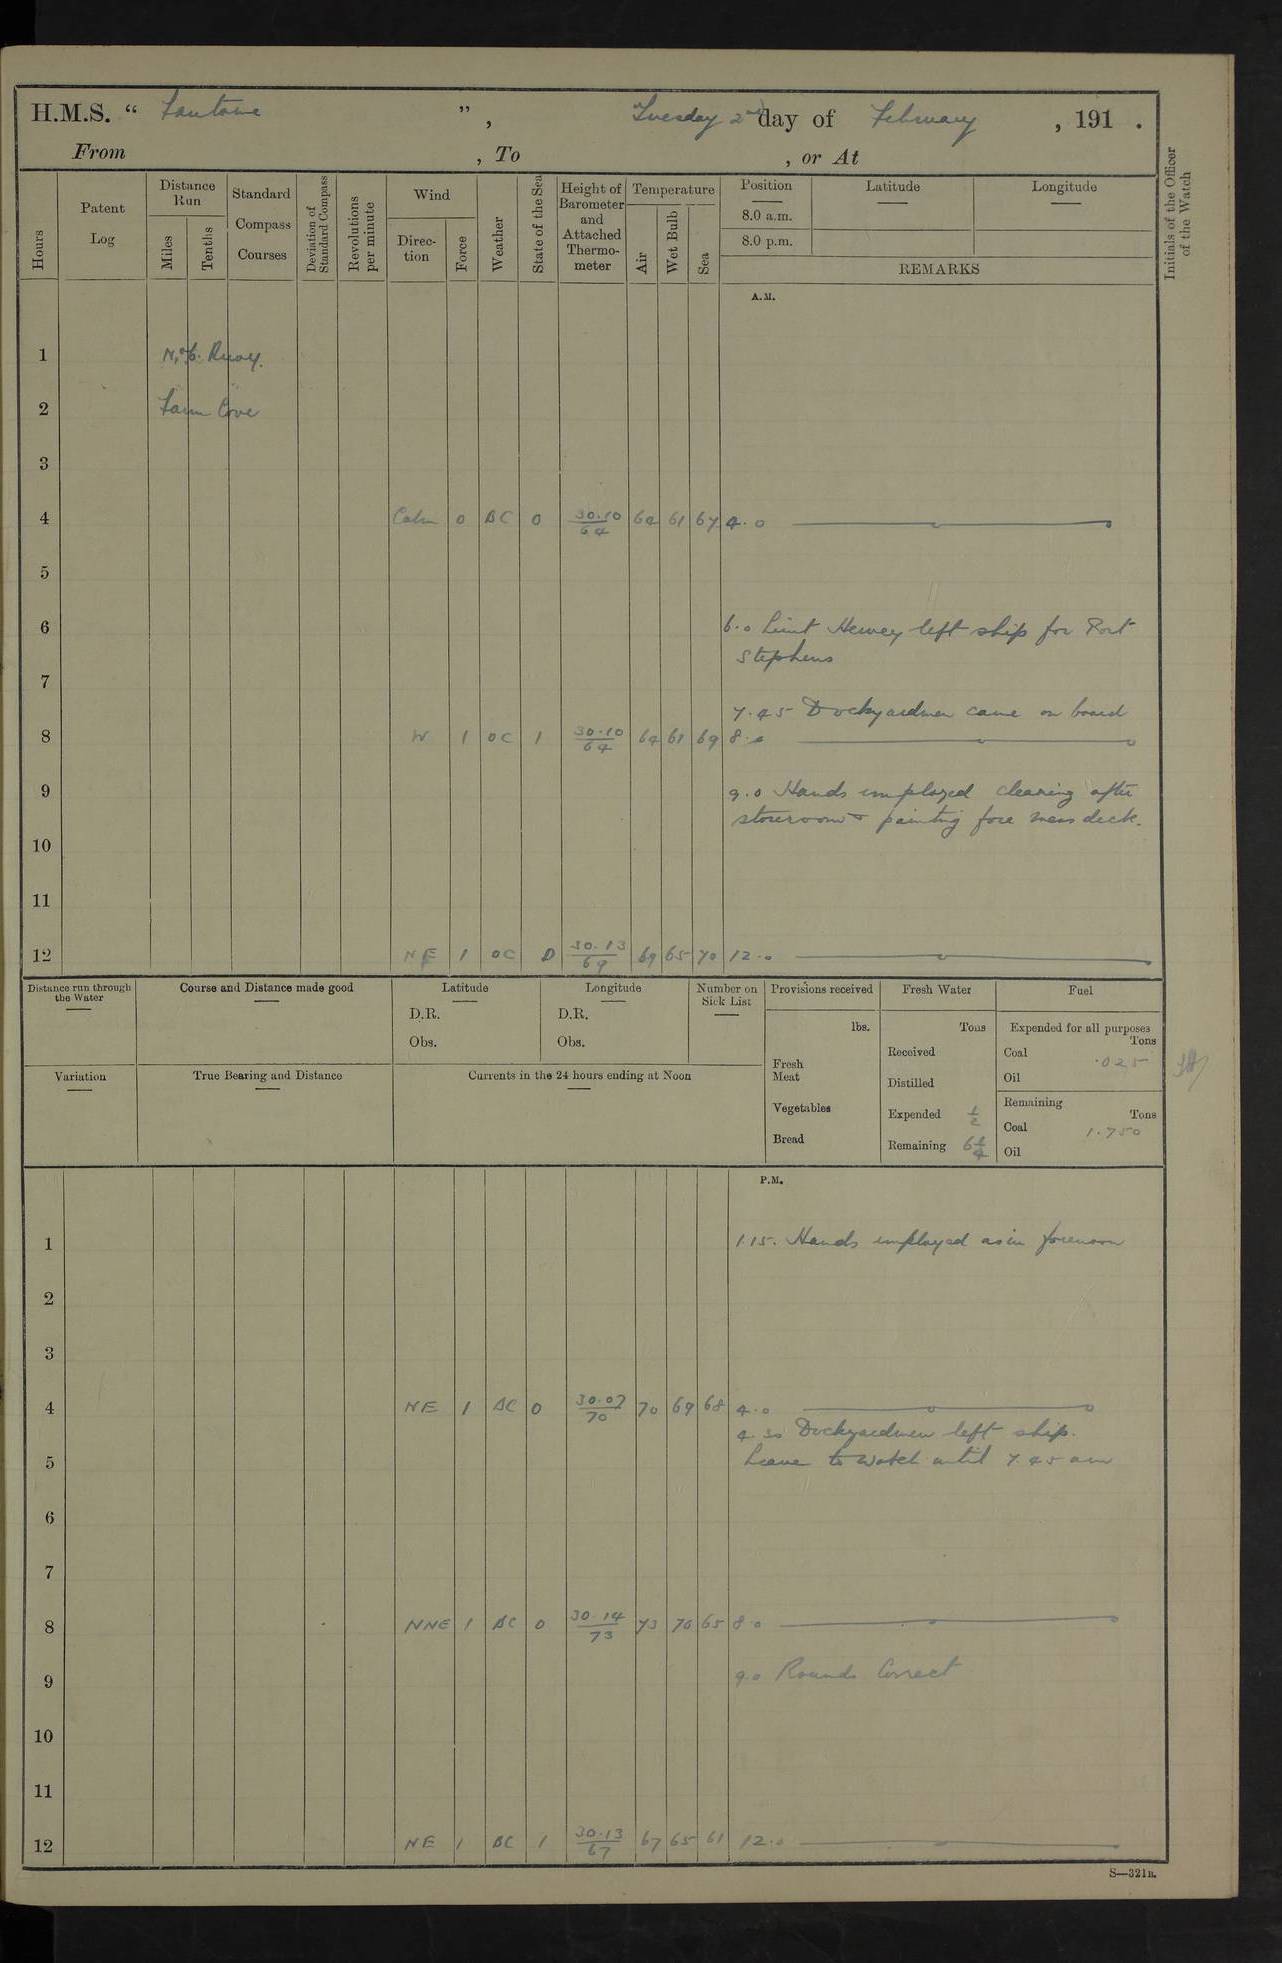 H.M.S. “ Fantome ” , Tuesday 2nd day of February , 191 .
From , To , or At
Hours
Patent Log
Distance Run
Miles
Tenths
Standard Compass Courses
Deviation of Standard Compass
Revolutions per minute
Wind
Direc-tion
Force
Weather
State of the Sea
Height of Barometer and Attached Thermo-meter
Temperature
Air
Wet Bulb
Sea
Position Latitude Longitude
8.0 a.m.
8.0 p.m.
REMARKS
Initials of the Officer of the Watch
A.M.
1 No 6. Buoy.
2 Farm Cove
3
4 Calm 0 BC 0 30.10/64 64 61 67 4.0
5
6 6.0 Lieut Hewey left ship for Port
Stephens
7
7.45 Dockyardmen came on board
8 W 1 OC 1 30.10/64 64 61 69 8.0
9 9.0 Hands employed cleaning after
storeroom & painting fore mess deck.
10
11
12 NE 1 OC 0 30.13/69 69 65 70 12.0
Distance run through the Water
Course and Distance made good
Latitude
D.R.
Obs.
Longitude
D.R.
Obs.
Number on Sick List
Provisions received
lbs.
Fresh Meat
Vegetables
Bread
Fresh Water
Tons
Received
Distilled
Expended 1/2
Remaining 6 1/4
Fuel
Expended for all purposes
Tons
Coal .025
Oil
Remaining
Tons
Coal 1.750
Oil
Variation
True Bearing and Distance
Currents in the 24 hours ending at Noon
P.M.
1 1.15. Hands employed as in forenoon
2
3
4 NE 1 BC 0 30.07/70 70 69 68 4.0
4.30 Dockyardmen left ship.
5 Leave to watch until 7.45 am
6
7
8 NNE 1 BC 0 30.14/73 73 70 65 8.0
9 9.0 Rounds Correct
10
11
12 NE 1 BC 1 30.13/67 67 65 61 12.0
S—321B.